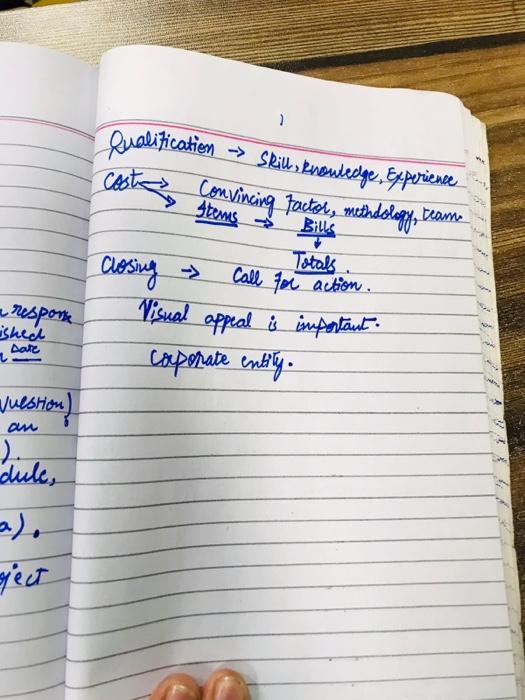 Qualification → Skill, knowledge, Experience
Cost → Convincing factor, methdology, team
→ Items → Bills
↓
Totals.
Closing → Call for action.
Visual appeal is important.
Coporate entity.
respons
ished
Date
Question)
an
).
dule,
a).
ject